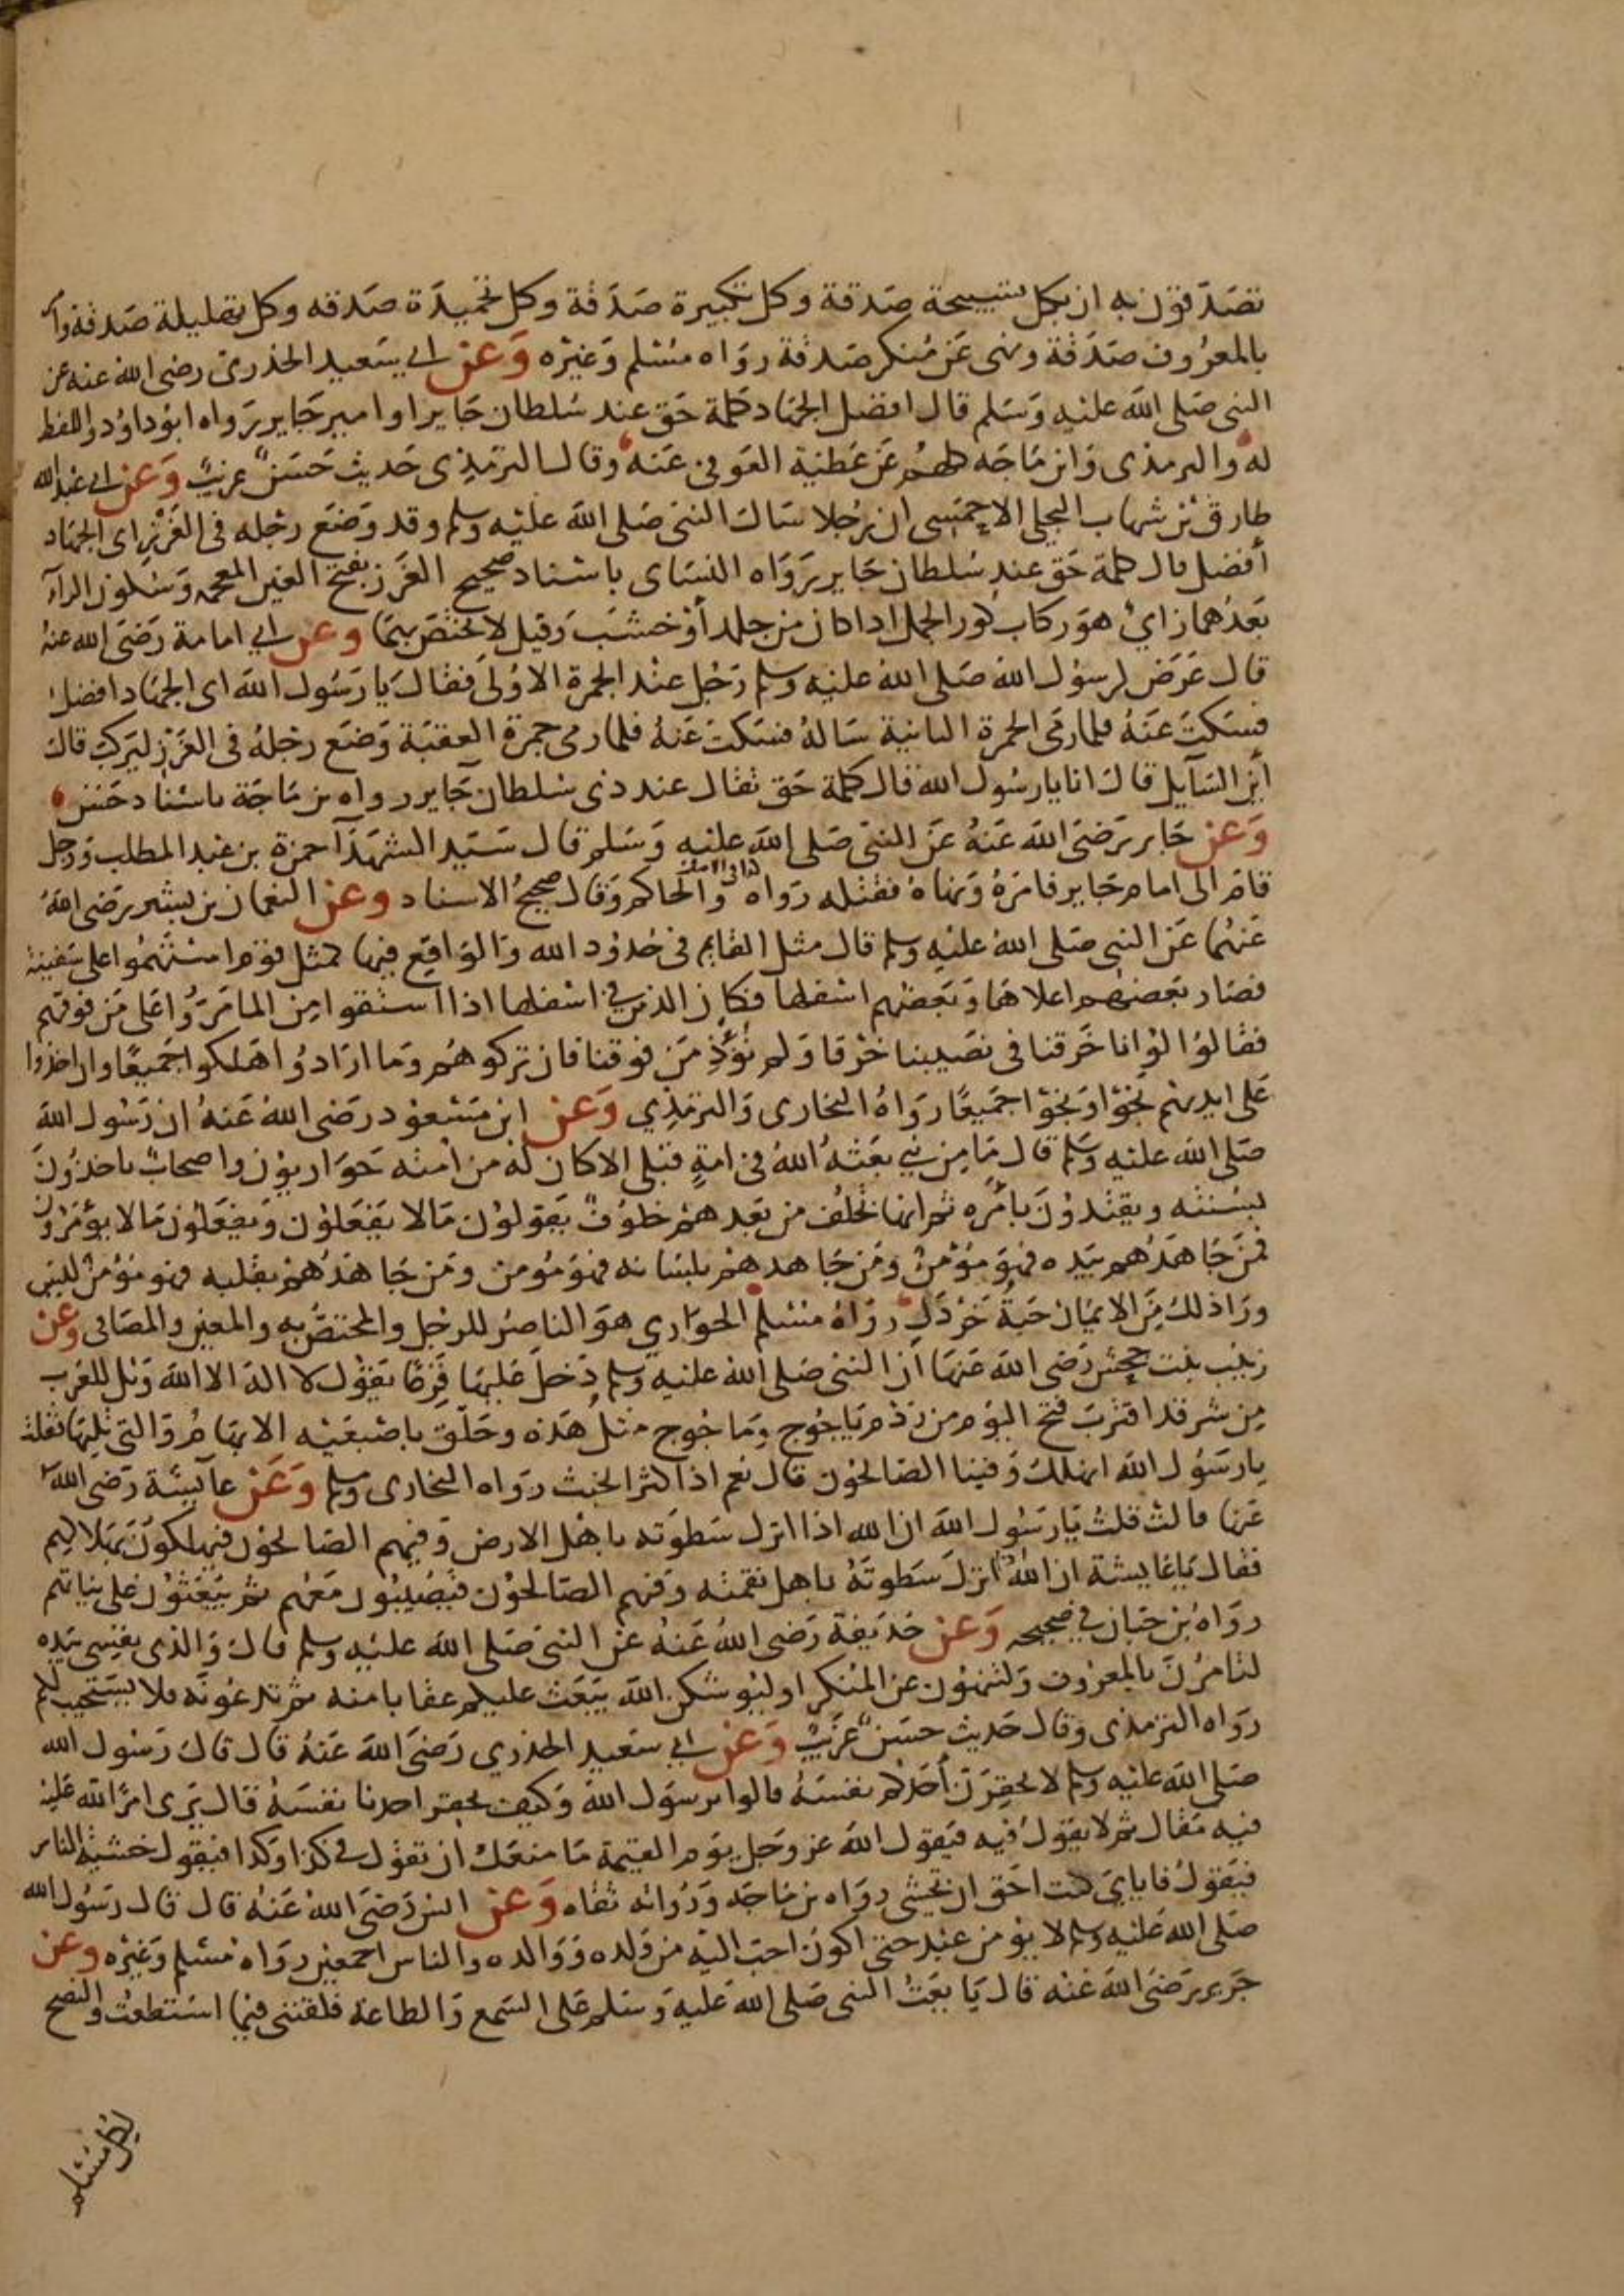 تصدقون به ان بكل تسبيحة صدقة وكل تكبيرة صدقة وكل تحميدة صدقه وكل تهليلة صدقة وامر
بالمعروف صدقة ونهى عن منكر صدقة رواه مسلم وغيره وعن ابي سعيد الخدري رضى الله عنه عن
النبى صلى الله عليه وسلم قال افضل الجهاد كلمة حق عند سلطان جاير او امير جاير رواه ابو داود واللفظ
له والترمذى وابن ماجه كلهم عن عطية العوفى عنه وقال الترمذى حديث حسن غريب وعن ابى عبد الله
طارق بن شهاب البجلى الاحمسى ان رجلا سال النبى صلى الله عليه وسلم وقد وضع رجله فى الغرز اى الجهاد
أفضل قال كلمة حق عند سلطان جاير رواه النساى باسناد صحيح الغرز بفتح الغين المعجمه وسكون الرآء
بعدهما زاى هو ركاب كور الجمل اذا كان من جلد أو خشب وقيل لا يختص بهما وعن ابي امامة رضى الله عنه
قال عرض لرسول الله صلى الله عليه وسلم رجل عند الجمرة الاولى فقال يا رسول الله اى الجهاد افضل
فسكت عنه فلما رمى الجمرة الثانية ساله فسكت عنه فلما رمى جمرة العقبة وضع رجله فى الغرز ليركب قال
أين السآيل قال انا يا رسول الله قال كلمة حق تقال عند ذى سلطان جاير رواه بن ماجة باسناد حسن
وعن جابر رضى الله عنه عن النبى صلى الله عليه وسلم قال سيد الشهدآ حمزة بن عبد المطلب ورجل
قام الى امام جاير فامره ونهاه فقتله رواه والحاكم وقال صحيح الاسناد وعن النعمان بن بشير رضى الله
عنهما عن النبى صلى الله عليه وسلم قال مثل القايم فى حدود الله والواقع فيها كمثل قوم استهموا على سفينة
فصار بعضهم اعلاها وبعضهم اسفلها فكان الذين فى اسفلها اذا استقوا من الما مروا على من فوقهم
فقالوا لو انا خرقنا فى نصيبنا خرقا ولم نؤذ من فوقنا فان تركوهم وما ارادوا هلكوا جميعا وان اخذوا
على ايديهم نجوا ونجوا جميعا رواه البخارى والترمذي وعن ابن مسعود رضى الله عنه ان رسول الله
صلى الله عليه وسلم قال ما من نبي بعثه الله فى امة قبلى الا كان له من امته حواريون واصحاب ياخذون
بسنته ويقتدون بأمره ثم انها تخلف من بعدهم خلوف يقولون مالا يفعلون ويفعلون مالا يؤمرون
فمن جاهدهم بيده فهو مؤمن ومن جاهدهم بلسانه فهو مومن ومن جاهدهم بقلبه فهو مؤمن ليس
ورا ذلك من الايمان حبة خردل رواه مسلم الحواري هو الناصر للرجل والمختص به والمعين والمصافى وعن
زينب بنت جحش رضى الله عنها ان النبى صلى الله عليه وسلم دخل عليها فزعا يقول لا اله الا الله ويل للعرب
من شر قد اقترب فتح اليوم من ردم ياجوج وماجوج مثل هذه وحلق باصبعيه الابهام والتي تليها فقلت
يا رسول الله انهلك وفينا الصالحون قال نعم اذا كثر الخبث رواه البخارى ومسلم وعن عآيشة رضى الله
عنها قالت قلت يا رسول الله ان الله اذا انزل سطوته باهل الارض وفيهم الصالحون فيهلكون بهلاكهم
فقال يا عايشة ان الله انزل سطوته باهل نقمته وفيهم الصالحون فيصيبون معهم ثم يبعثون على نياتهم
رواه بن حبان في صحيحه وعن حذيفة رضى الله عنه عن النبى صلى الله عليه وسلم قال والذى نفسى بيده
لتامرن بالمعروف ولتنهون عن المنكر او ليوشكن الله يبعث عليكم عقابا منه ثم تدعونه فلا يستجيب لكم
رواه الترمذى وقال حديث حسن غريب وعن ابي سعيد الخدري رضى الله عنه قال قال رسول الله
صلى الله عليه وسلم لا يحقرن أحدكم نفسه قالوا يرسول الله وكيف يحقر احدنا نفسه قال يرى امرا لله عليه
فيه مقال ثم لا يقول فيه فيقول الله عز وجل يوم القيمة ما منعك ان تقول فى كذا وكذا فيقول خشية الناس
فيقول فاياي كنت احق ان تخشى رواه بن ماجه ورواته ثقاه وعن انس رضى الله عنه قال قال رسول الله
صلى الله عليه وسلم لا يؤمن عبد حتى اكون احب اليه من ولده ووالده والناس اجمعين رواه مسلم وغيره وعن
جرير رضى الله عنه قال يا بعت النبى صلى الله عليه وسلم على السمع والطاعة فلقننى فيما استطعت والنصح
لكل مسلم